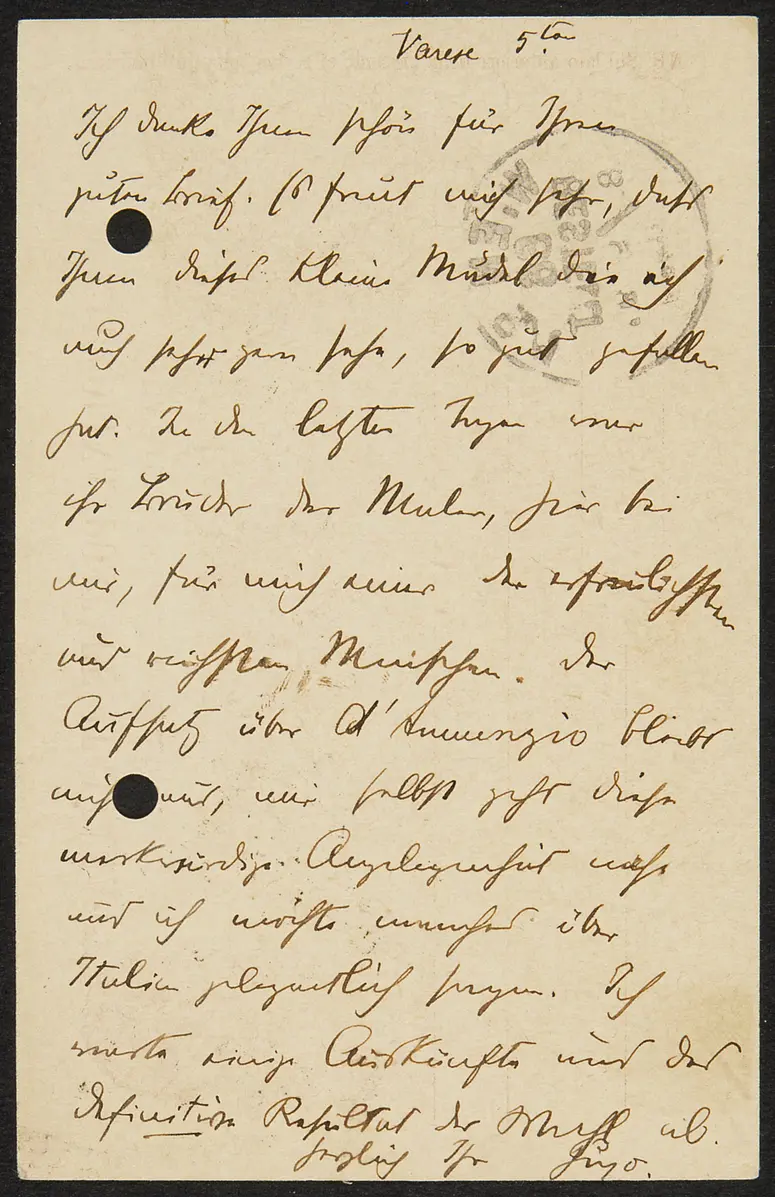 Varese 5ten
Ich danke Ihnen schön für Ihren
guten Brief. Es freut mich sehr, dass
Ihnen dieses kleine Mädel die ich
auch sehr gern sehe, so gut gefallen
hat. In den letzten Tagen war
ihr Bruder der Maler, hier bei
mir, für mich einer der erfreulichsten
und reichsten Menschen. Der
Aufsatz über d'Annunzio bleibt
nicht aus, mir selbst geht diese
merkwürdige Angelegenheit nahe
und ich möchte manches über
Italien gelegentlich sagen. Ich
warte einige Auskünfte und das
definitive Resultat der Wahl ab.
herzlich Ihr Hugo.
WIEN
BESTELLT